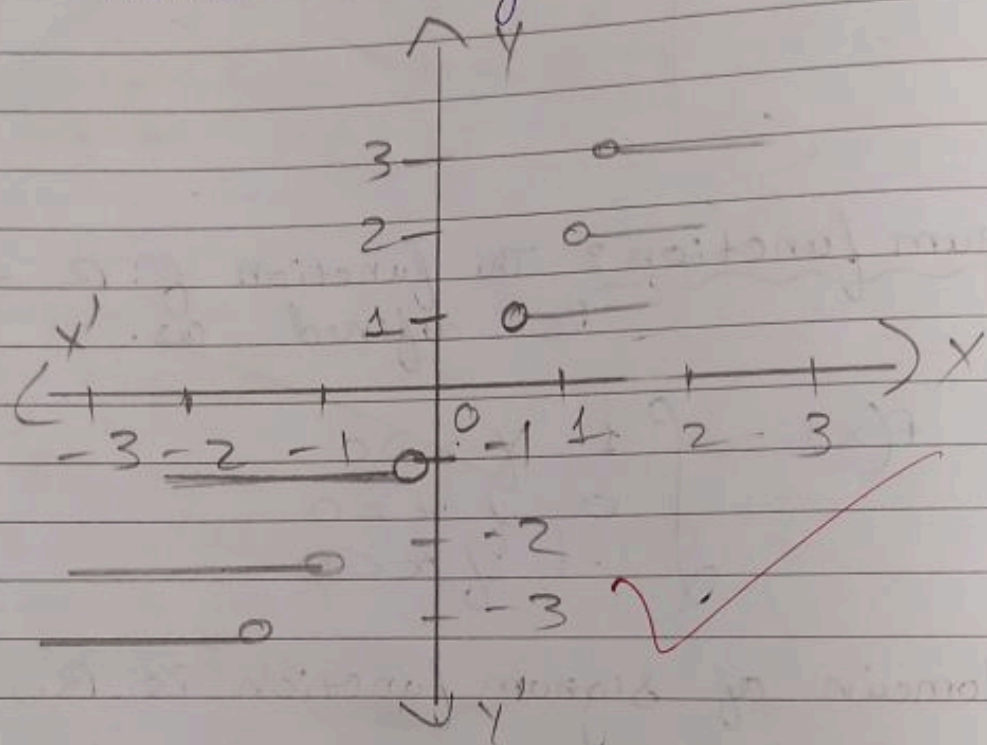 Y
3
2
1
X'
X
0
-3 -2 -1 -1 1 2 3
-2
-3
Y'